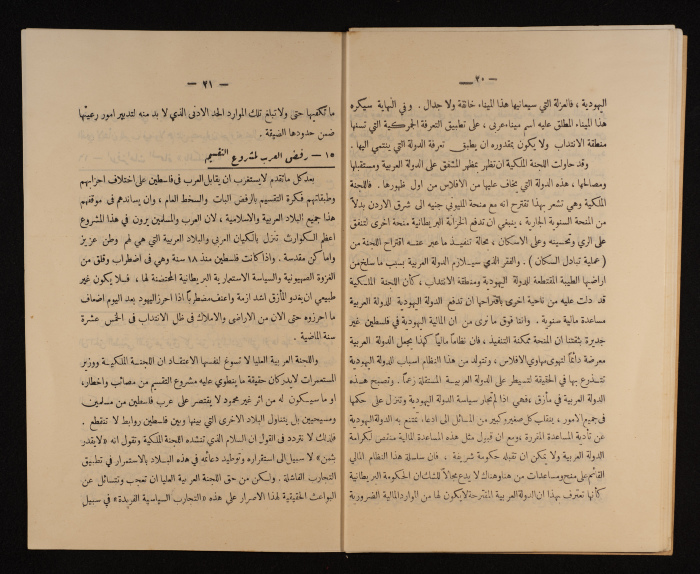 — ٢٠ —
اليهودية ، فالعزلة التي سيعانيها هذا الميناء خانقة ولا جدال . وفي النهاية سيكره
هذا الميناء المطلق عليه اسم ميناء عربي ، على تطبيق التعرفة الجمركية التي تسنها
منطقة الانتداب ولا يكون بمقدوره ان يطبق تعرفة الدولة التي ينتمي اليها .
وقد حاولت اللجنة الملكية ان تظهر بمظهر المشفق على الدولة العربية ومستقبلها
ومصالحها ، هذه الدولة التي يخاف عليها من الافلاس من اول ظهورها . فاللجنة
الملكية وهي تشعر بهذا تقترح انه مع منحة المليوني جنيه الى شرق الاردن بدلاً
من المنحة السنوية الجارية ، ينبغي ان تدفع الخزانة البريطانية منحة اخرى لتنفق
على الري وتحسينه وعلى الاسكان ، محاولة تنفيذ ما عبر عنه اقتراح اللجنة من
( عملية تبادل السكان ) . والفقر الذي سيلازم الدولة العربية بسبب ما سلخ من
اراضيها الطيبة المقتطعة للدولة اليهودية ومنطقة الانتداب ، كأن اللجنة الملكية
قد دلت عليه من ناحية اخرى باقتراحها ان تدفع الدولة اليهودية للدولة العربية
مساعدة مالية سنوية . واننا فوق ما نرى من ان المالية اليهودية في فلسطين غير
جديرة بثقتنا ان المنحة ممكنة التنفيذ ، فان نظاماً مالياً كهذا يجعل الدولة العربية
معرضة دائماً لتهوى مهاوي الافلاس ، وتتولد من هذا النظام اسباب الدولة اليهودية
تتذرع بها في الحقيقة لتسيطر على الدولة العربية المستقلة زعماً . وتصبح هذه
الدولة العربية في مأزق ، فهي اذا لم تجار سياسة الدولة اليهودية وتنزل على حكمها
في جميع الامور ، ينقلب كل صغير وكبير من المسائل الى ادعاء تمتنع به الدولة اليهودية
عن تأدية المساعدة المقررة ، ومع ان قبول مثل هذه المساعدة المالية منتقص لكرامة
الدولة العربية ولا يمكن ان تقبله حكومة شريفة ، فان سلسلة هذا النظام المالي
القائم على منح ومساعدات من هنا وهناك لا يدع مجالاً للشك ان الحكومة البريطانية
كأنها تعترف بهذا ان الدولة العربية المقترحة لا يكون لها من الموارد المالية الضرورية
— ٢١ —
ما تكفيها حتى ولا تبلغ تلك الموارد الحد الادنى الذي لا بد منه لتدبير امور رعيتها
ضمن حدودها الضيقة .
١٥ — رفض العرب لمشروع التقسيم
بعد كل ما تقدم لا يستغرب ان يقابل العرب في فلسطين على اختلاف احزابهم
وطبقاتهم فكرة التقسيم بالرفض البات والسخط العام ، وان يساندهم في موقفهم
هذا جميع البلاد العربية والاسلامية ، لان العرب والمسلمين يرون في هذا المشروع
اعظم الكوارث تنزل بالكيان العربي والبلاد العربية التي هي لهم وطن عزيز
واماكن مقدسة . واذا كانت فلسطين منذ ١٨ سنة وهي في اضطراب وقلق من
الغزوة الصهيونية والسياسة الاستعمارية البريطانية المحتضنة لها ، فلا يكون غير
طبيعي ان يغدو المأزق اشد ازمة واعنف مضطرباً اذا احرز اليهود بعد اليوم اضعاف
ما احرزوه حتى الان من الاراضي والاملاك في ظل الانتداب في الخمس عشرة
سنة الماضية .
واللجنة العربية العليا لا تسوغ لنفسها الاعتقاد ان اللجنة الملكية ووزير
المستعمرات لا يدركان حقيقة ما ينطوي عليه مشروع التقسيم من مصائب واخطار ،
او ما سيكون له من اثر غير محدود لا يقتصر على عرب فلسطين من مسلمين
ومسيحيين بل يتناول البلاد الاخرى التي بينها وبين فلسطين روابط لا تنقطع .
فلذلك لا نتردد في القول ان السلام الذي تنشده اللجنة الملكية وتقول انه «لا يقدر
بثمن» لا سبيل الى استقراره وتوطيد دعائمه في هذه البلاد بالاستمرار في تطبيق
التجارب الفاشلة . ولكن من حق اللجنة العربية العليا ان تعجب وتتسائل عن
البواعث الحقيقية لهذا الاصرار على هذه «التجارب السياسية الفريدة» في سبيل